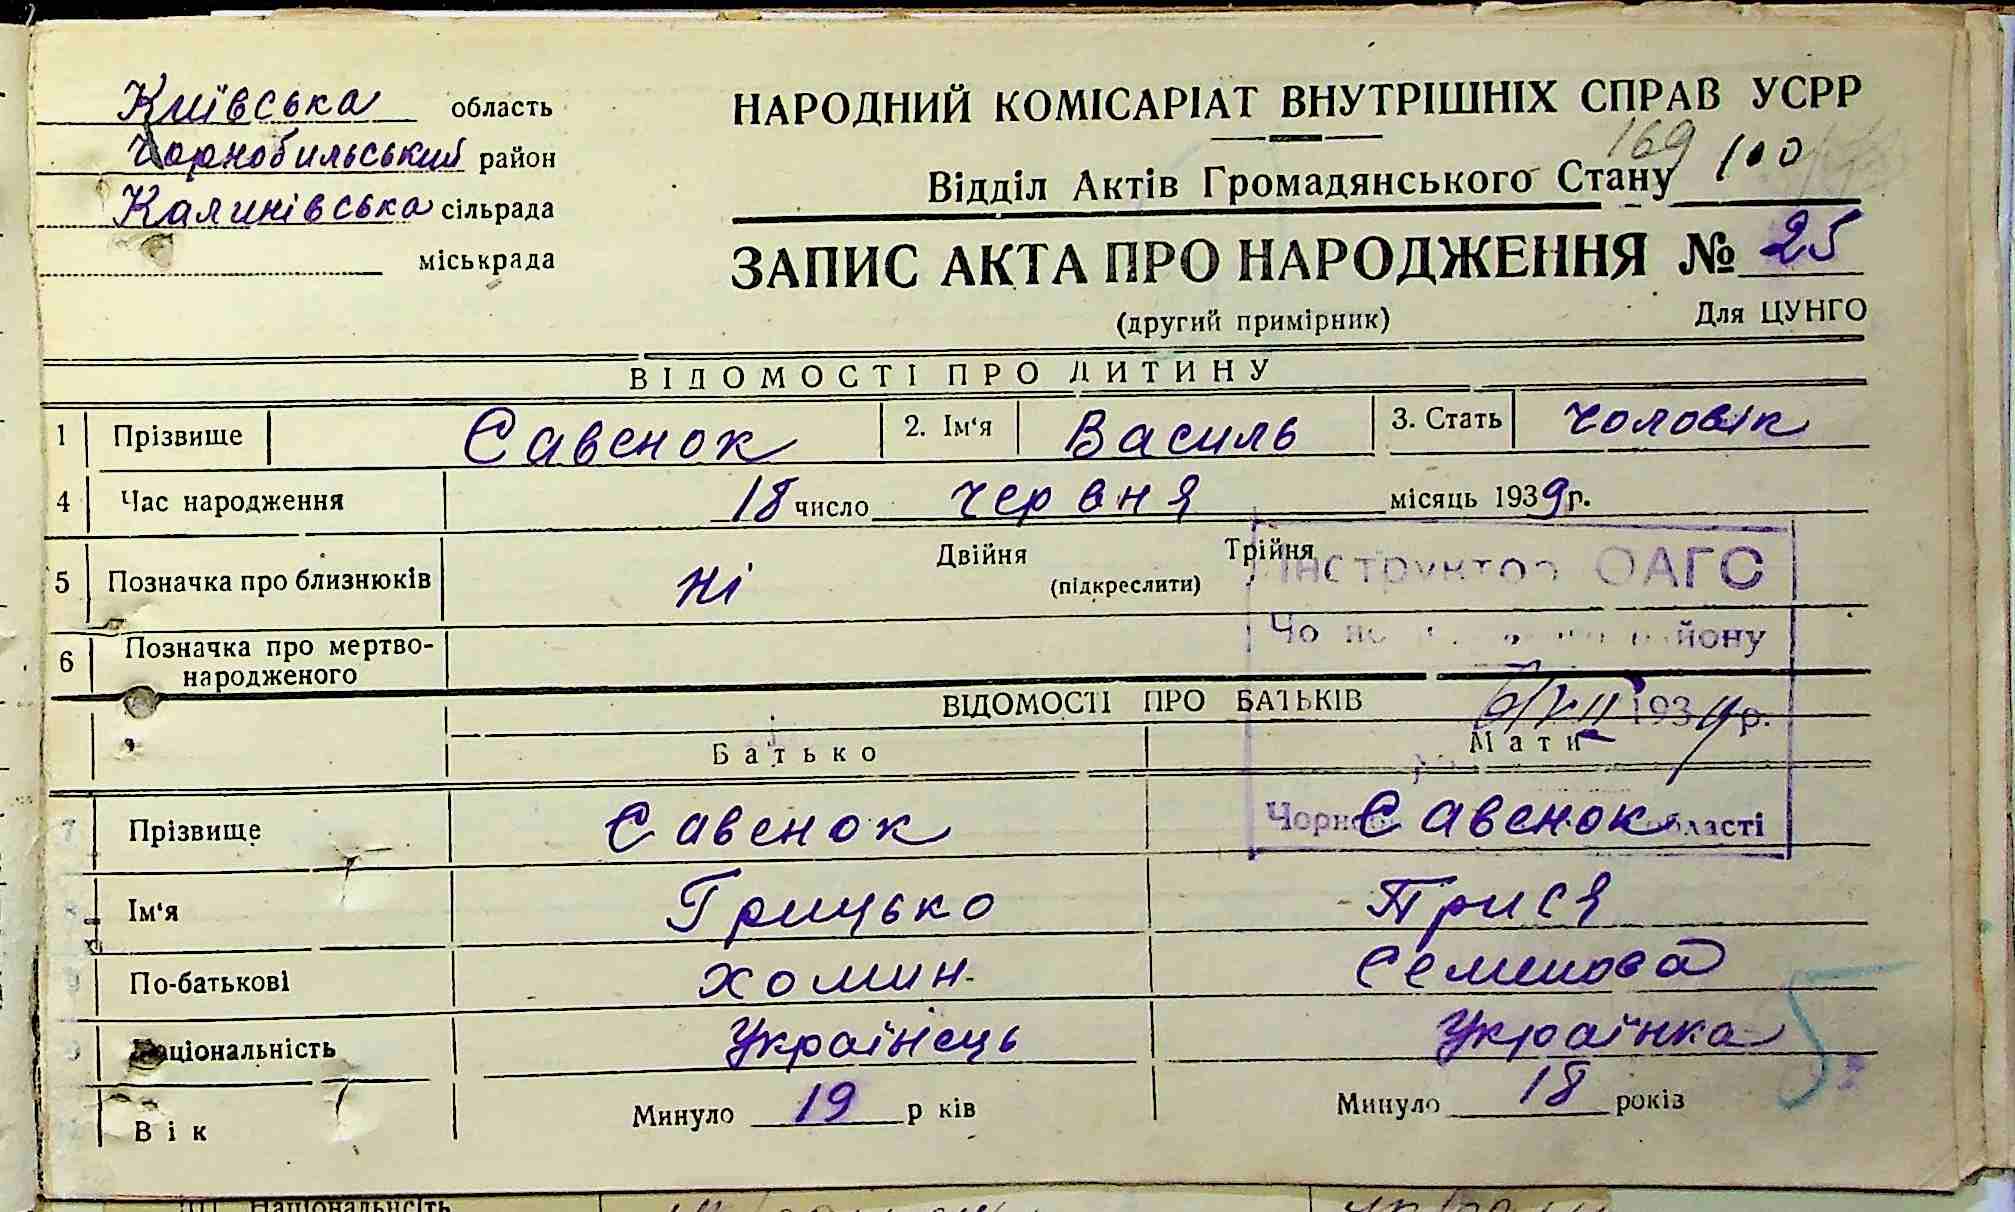 Київська область
Чорнобильський район
Калинівська сільрада
міськрада
НАРОДНИЙ КОМІСАРІАТ ВНУТРІШНІХ СПРАВ УСРР
169 100
Відділ Актів Громадянського Стану
ЗАПИС АКТА ПРО НАРОДЖЕННЯ № 25
(другий примірник) Для ЦУНГО
ВІДОМОСТІ ПРО ДИТИНУ
1 Прізвище Савенок 2. Ім'я Василь 3. Стать чоловік
4 Час народження 18 число червня місяць 1939 р.
5 Позначка про близнюків ні Двійня Трійня
(підкреслити)
Інструктор ОАГС
6 Позначка про мертво-
народженого
йону
ВІДОМОСТІ ПРО БАТЬКІВ
193 р.
Батько Мати
7 Прізвище Савенок Савенок
області
8 Ім'я Грицько Прися
9 По-батькові Хомин Семенова
Національність Українець Українка
5
Вік Минуло 19 р ків Минуло 18 років
Національність